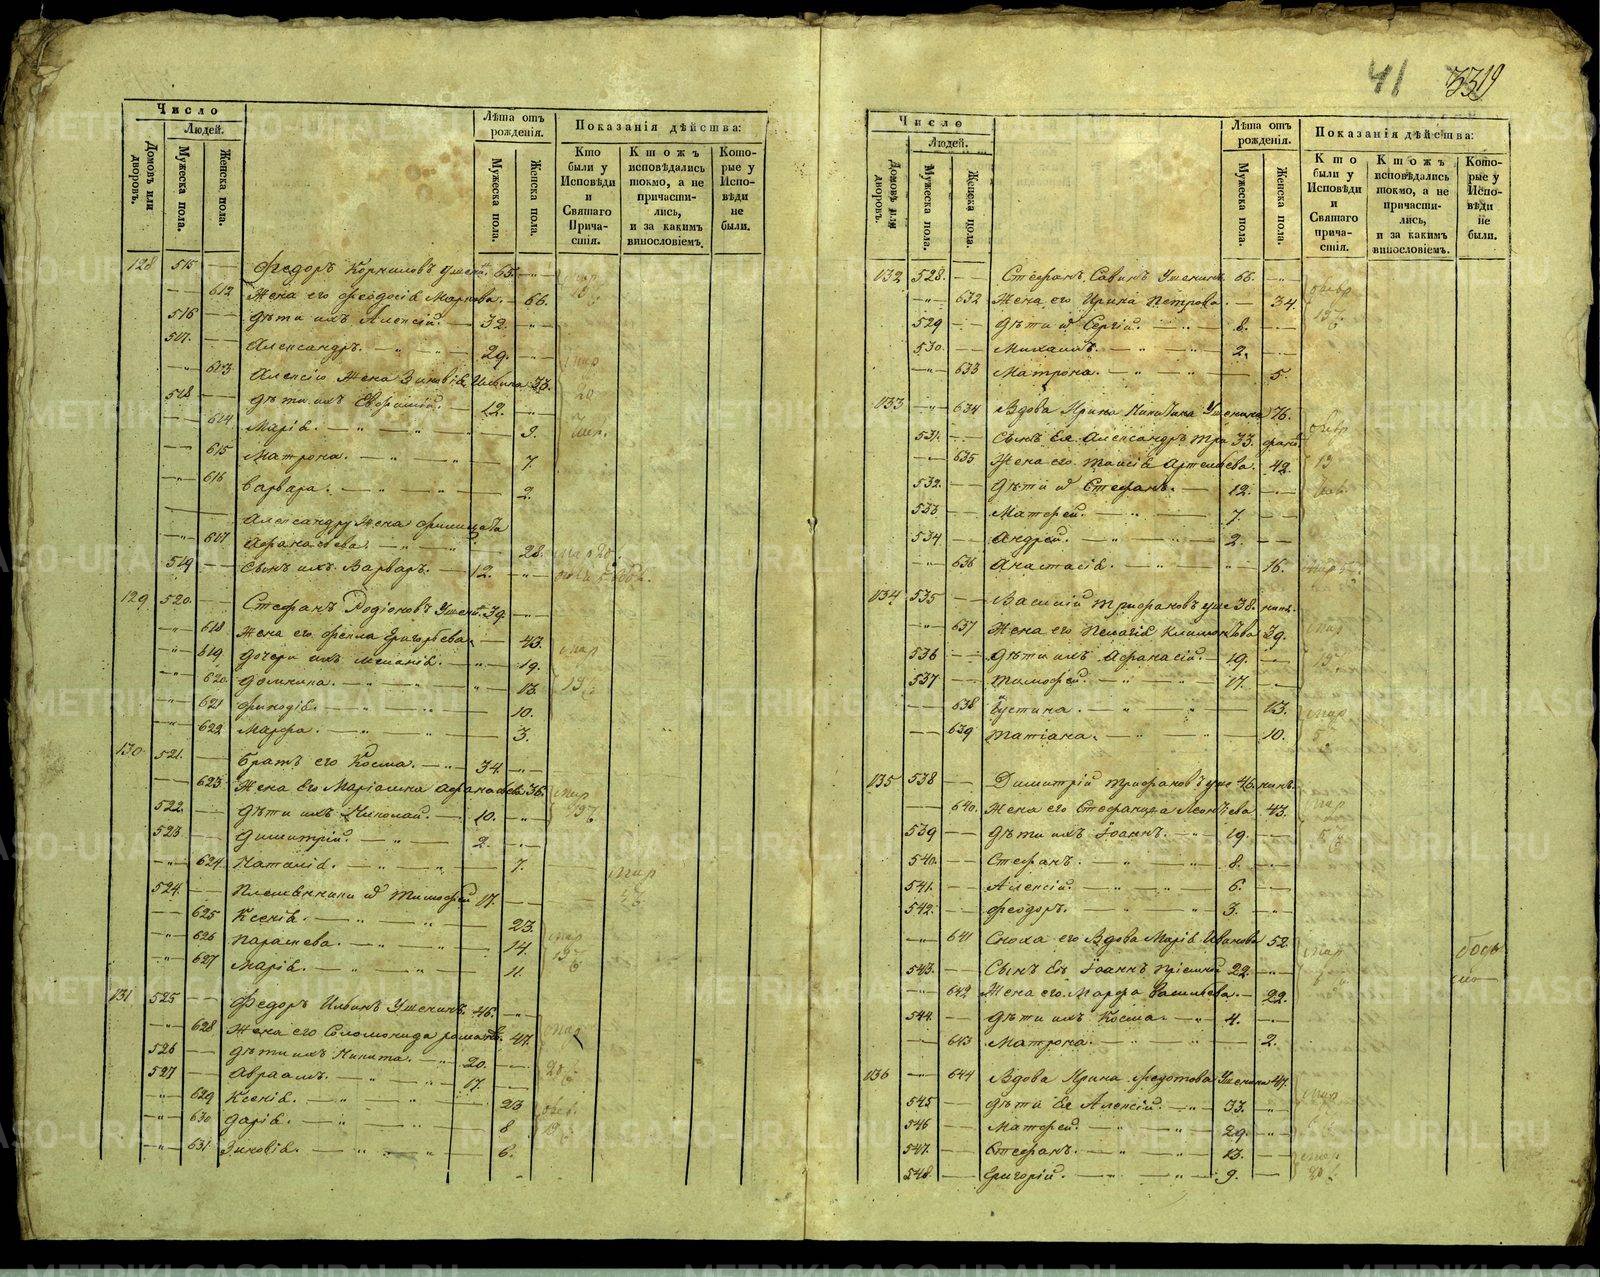 41 3319
Число
Людей.
Домовъ или дворовъ.
Мужеска пола.
Женска пола.
Лѣта отъ рожденія.
Мужеска пола.
Женска пола.
Показанія дѣйства:
Кто были у Исповѣди и Святаго Причастія.
Ктожъ исповѣдались токмо, а не причастились, и за какимъ винословіемъ.
Которые у Исповѣди не были.
128 515 Ѳедоръ Корниловъ Ушен. 65.
612 Жена его Ѳеодосія Маркова. 66.
516 Дѣти ихъ Алексій. 32.
517. Александръ. 29.
613 Алексію Жена Зиновія Ильина 33.
518 Дѣти ихъ 12.
614 Марія. 9.
615 Матрона. 7.
616 Варвара. 2.
Александру Жена
617 Афанасьева. 28.
519 Сынъ ихъ Варваръ. 12.
129 520. Стефанъ Родіоновъ Ушен. 39.
618 Жена его Ѳекла Григорьева. 43.
619 Дочери ихъ 19.
620. Домнина. 13.
621 10.
622 Марѳа. 3.
130 521. Братъ его Косма. 34.
623 Жена его Маріамна Афанасьева 36.
522. Дѣти ихъ Николай. 10.
523. Димитрій. 2.
624. Наталія. 7.
524. Племянники Тимофей 17.
625 Ксенія. 23.
626 Параскева. 14.
627 Марія. 11.
131 525 Ѳедоръ Ильинъ Ушенинъ. 46.
628 Жена его Соломонида 47.
526 Дѣти ихъ Никита. 20.
527 Авраамъ. 17.
629 Ксенія. 23
630 Дарія. 8
631 Зиновія. 6.
Число
Людей.
Домовъ или дворовъ.
Мужеска пола.
Женска пола.
Лѣта отъ рожденія.
Мужеска пола.
Женска пола.
Показанія дѣйства:
Кто были у Исповѣди и Святаго причастія.
Ктожъ исповѣдались токмо, а не причастились, и за какимъ винословіемъ.
Которые у Исповѣди не были.
132 528. Стефанъ Савинъ Ушенинъ 66.
632 Жена его Ирина Петрова. 34.
529 Дѣти Сергій. 8.
530. Михаилъ. 2.
633 Матрона. 5.
133 634 Вдова Ирина Никитина Ушенина 76.
531. Сынъ Ея Александръ 33.
635 Жена его Таисія Артемьева. 42.
532. Дѣти Стефанъ. 12.
533 Матфей. 7.
534. Андрей. 2.
636 Анастасія. 16.
134 535 Василій Трифановъ Уше 38. нинъ.
637 Жена его Пелагія 39.
536 Дѣти ихъ Афанасій. 19.
537 Тимофей. 17.
638 Іустина. 13.
639 Татіана. 10.
135 538 Димитрій Трифановъ Уше 46. нинъ.
640. Жена его Стефанида Леонтьева 43.
539 Дѣти ихъ Іоаннъ. 19.
540. Стефанъ. 8.
541. Алексій. 6.
542. Ѳеодоръ. 3.
641 Сноха его Вдова Марія Иванова 52.
543. Сынъ Ея Іоаннъ Пріемный 22.
642 Жена его Марѳа Васильева. 22.
544. Дѣти ихъ Косма. 4.
643 Матрона. 2.
136 644 Вдова Ирина Ѳедотова Ушенина 47.
545 Дѣти Ея Алексій. 33.
546 Матфей. 29.
547. Стефанъ. 13.
548. Григорій. 9.
METRIKI.GASO-URAL.RU